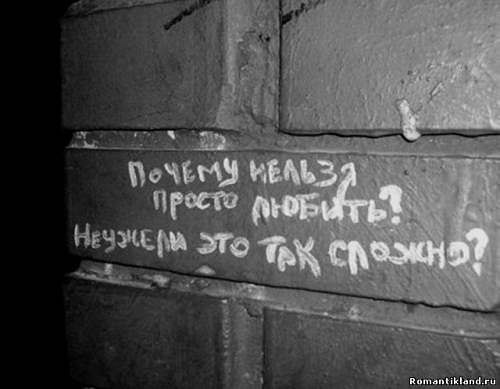 Почему нельзя
просто любить?
Неужели это так сложно?
Romantikland.ru